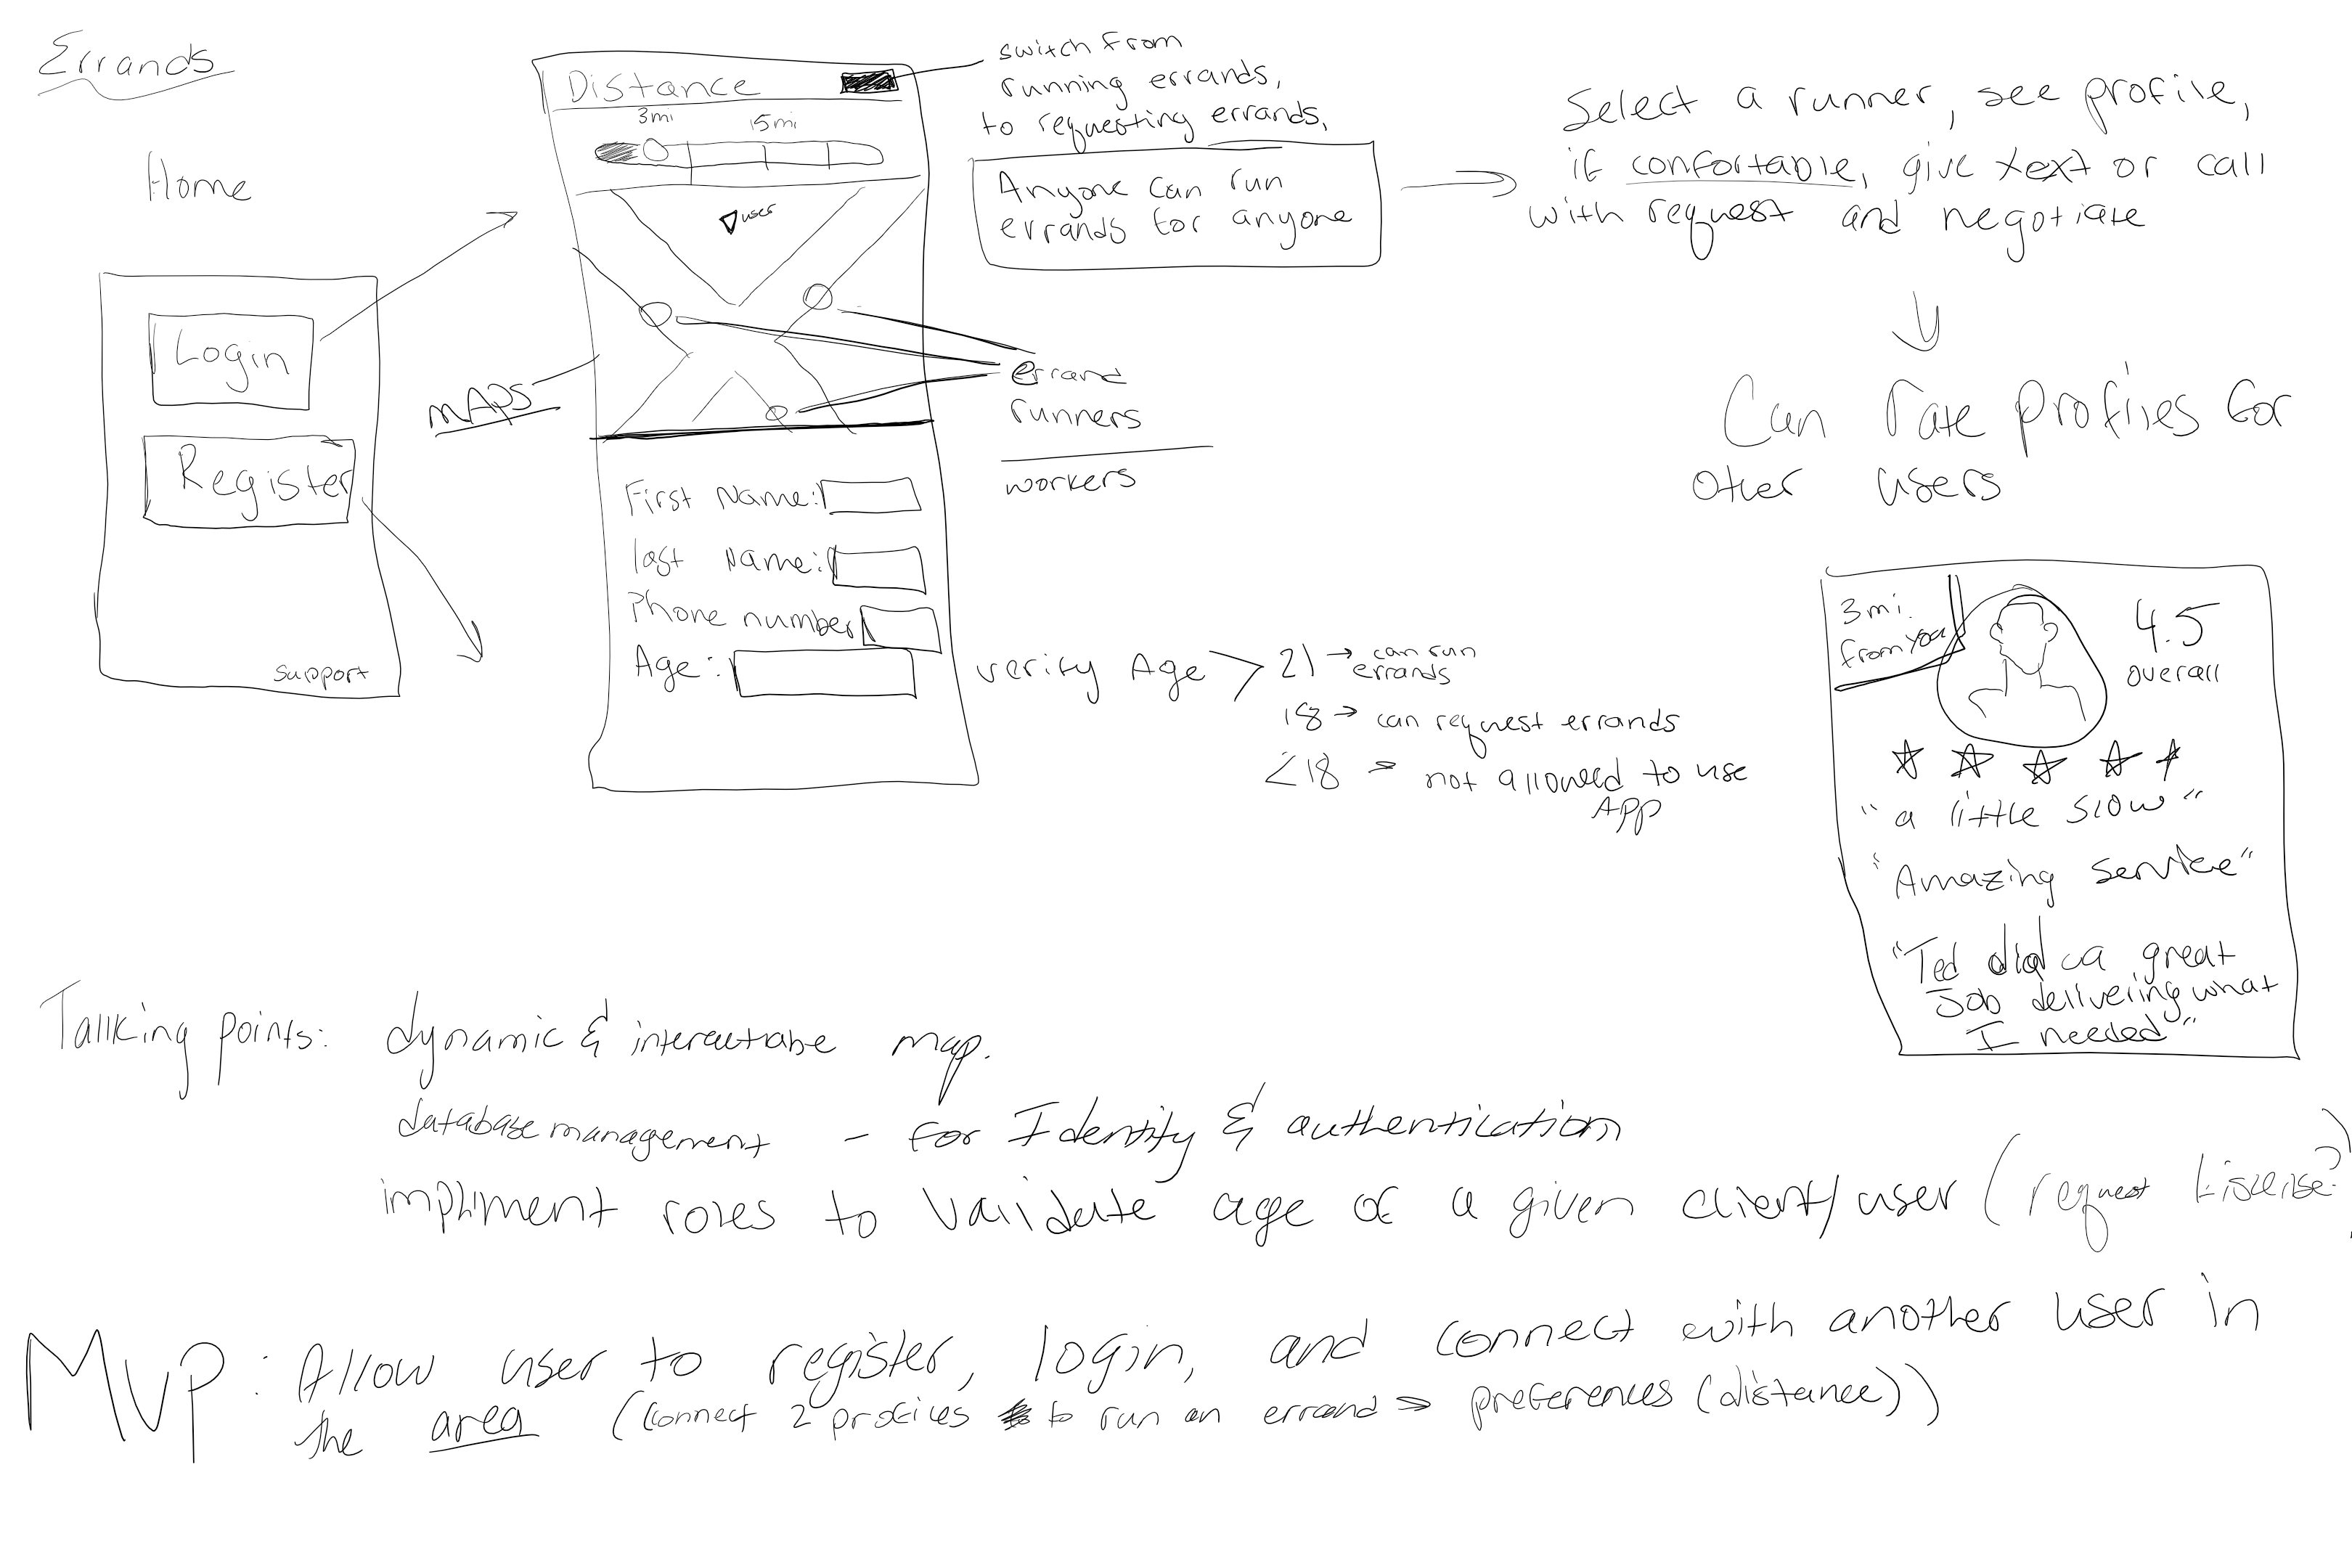 Errands
Home
Login
Register
support
Distance
3mi 15mi
user
MAPS
First Name:
last Name:
Phone number
Age:
switch from
running errands,
to requesting errands,
Anyone can run
errands for anyone
errand
runners
workers
verify Age > 21 → can run
errands
18 → can request errands
<18 → not allowed to use
APP
Select a runner, see profile,
if confortable, give text or call
with request and negotiate
Can rate profiles for
other users
3mi.
from you
4.5
overall
"a little slow"
"Amazing service"
"Ted did a great
Job delivering what
I needed"
Tallking points: dynamic & interactabe map.
database management - for Identity & authentication
impliment roles to validate age of a given client/user (request Liscense?)
MVP: Allow user to register, login, and connect with another user in
the area (connect 2 profiles to run an errand → preferences (distance))